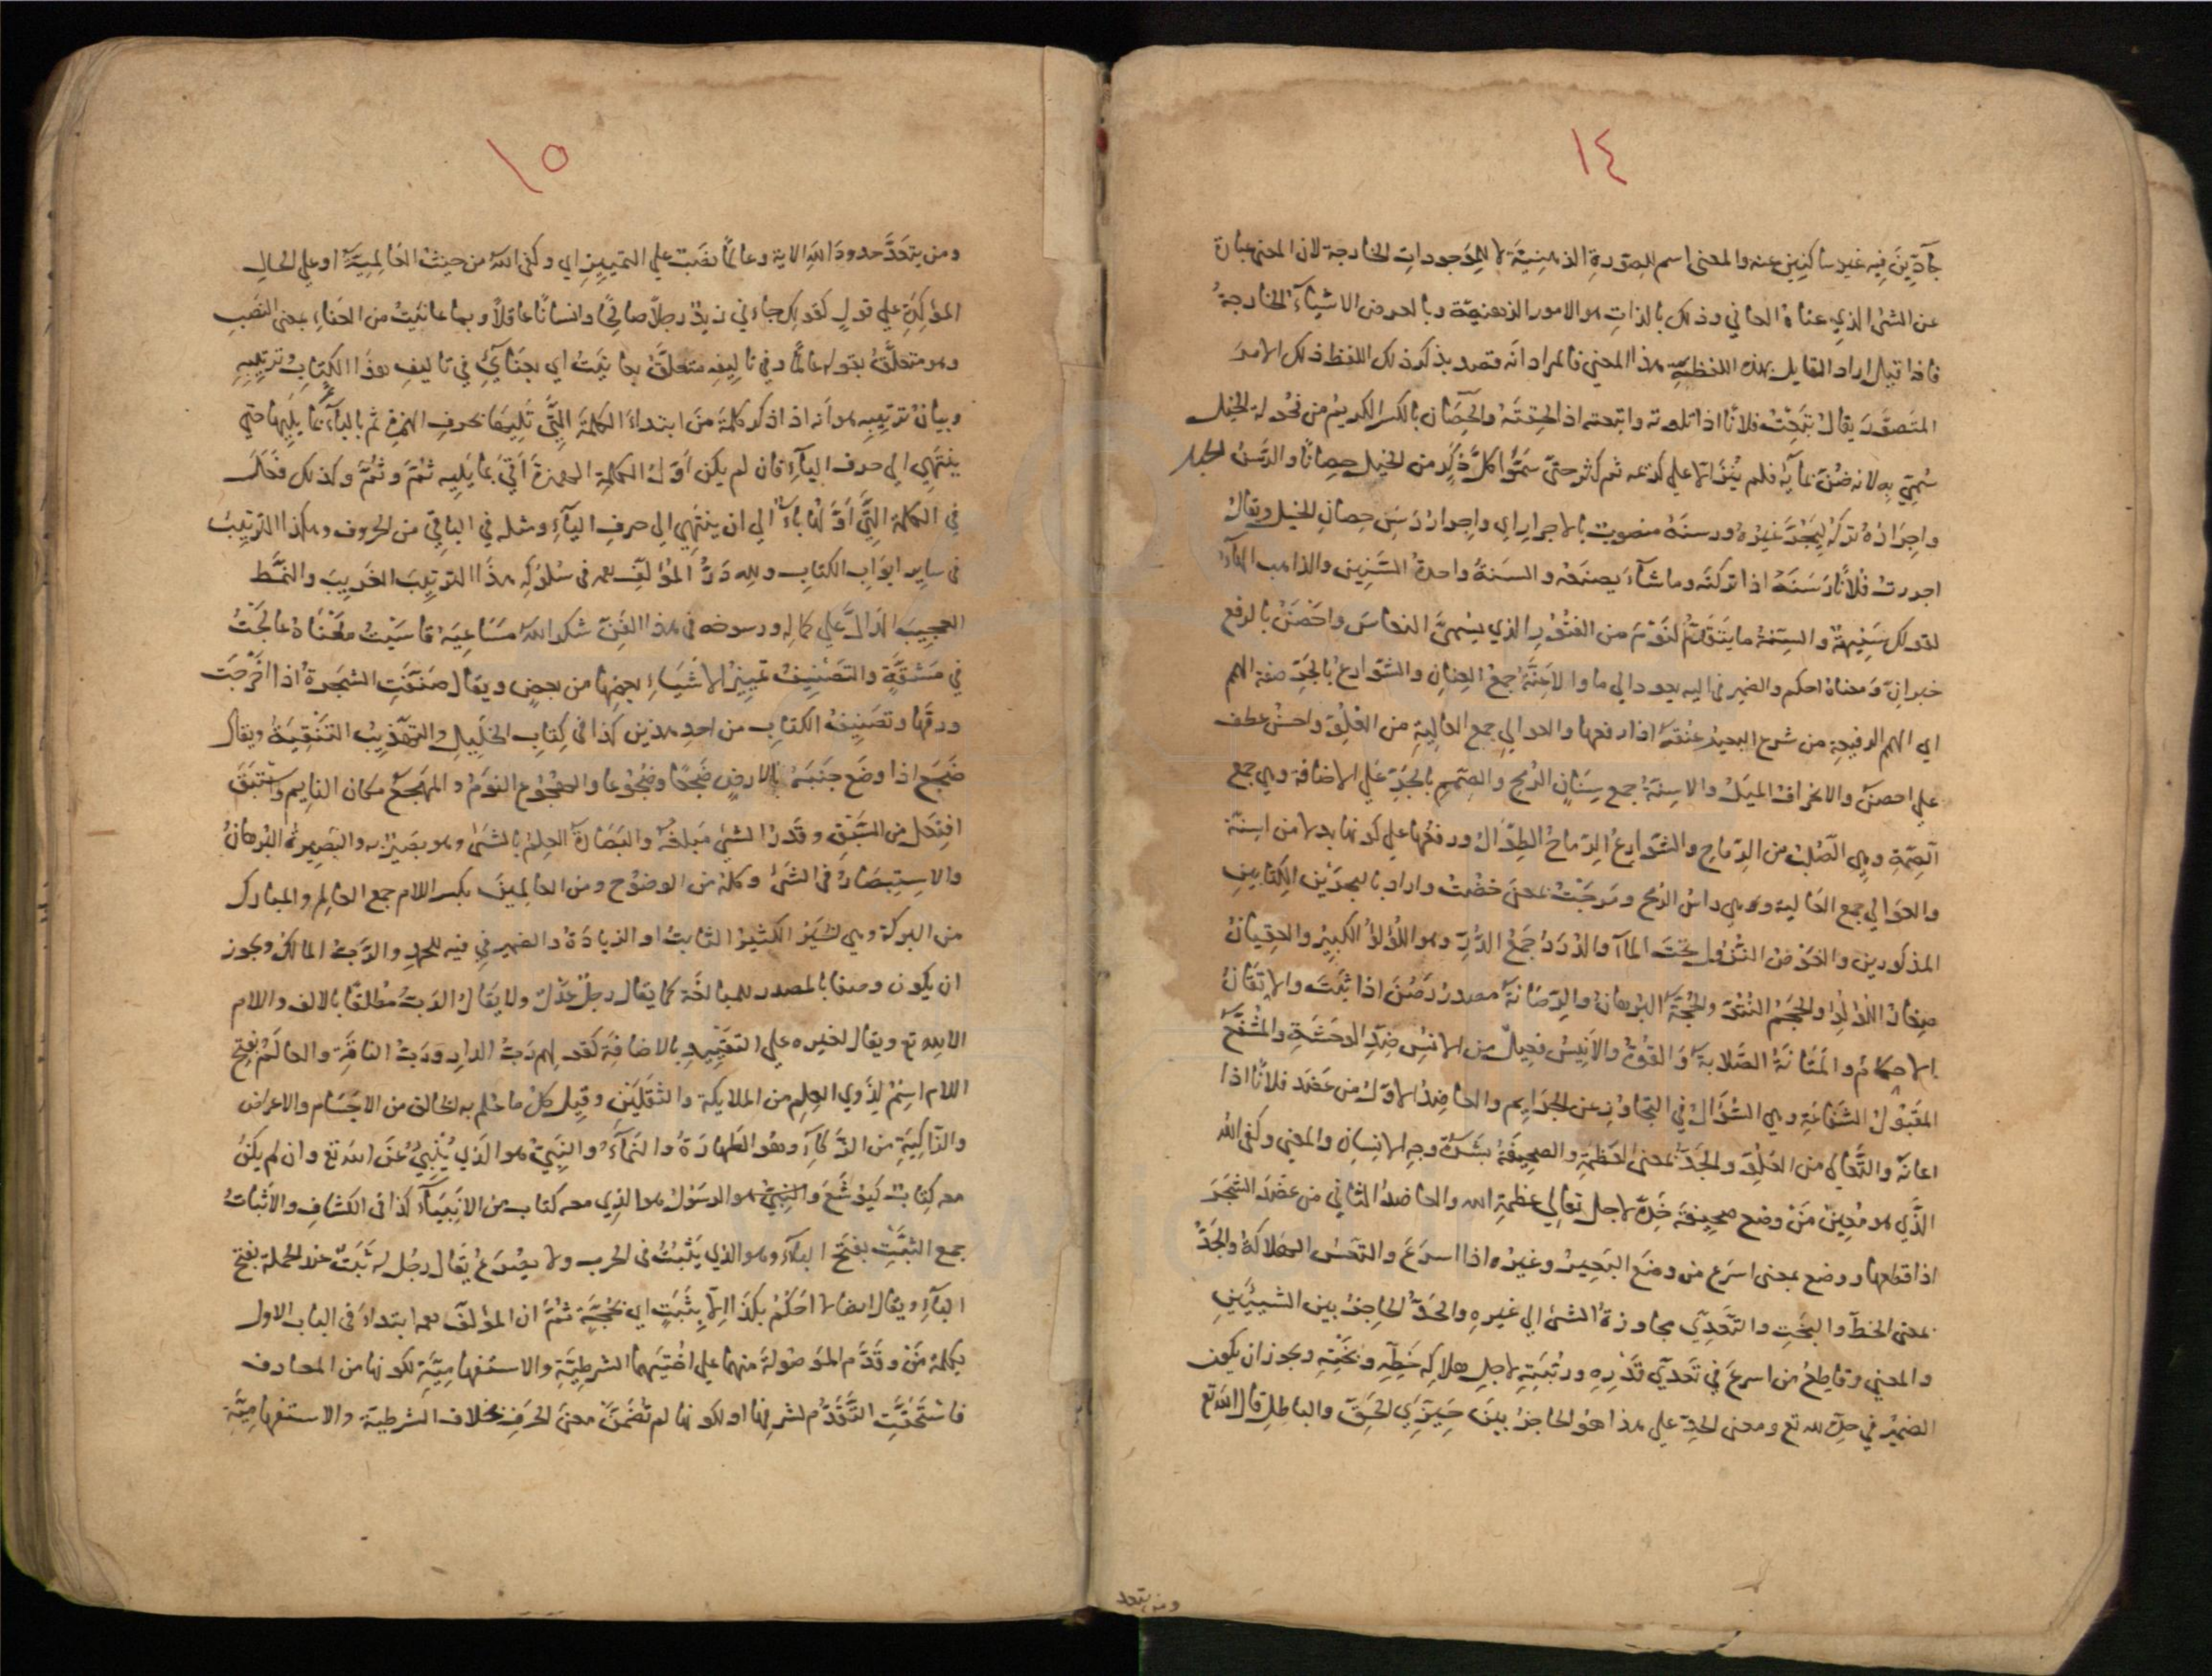 ١٤
جآدِّينَ فِيه غير ساكنين عنه والمعنى اسم للصّورة الذهنيّة لا للموجودات الخارجة لان المعنى عبارة
عن الشئ الذي عناه العاني وذلك بالذات هو الامور الذهنيّة وبالعرض الاشياء الخارجة
فاذا قيل اراد القايل بهذه اللفظة هذا المعني فالمراد انّه قصد بذكر ذلك اللفظ ذلك الامر
المتصوَّر يقال فلانًا اذا تلوته واتبعته اذا لحقته والحِصان بالكسر الكريم من فحولة الخيل
سُمّي به لانه ضُنّ بمآيه فلم يُنزَ الا علي كريمه ثم كثر حتّى سَمّوا كلّ ذكر من الخيل حصانًا والرَّسَن الحبل
واِجرَارُه تركه ورسنَه منصوب بالاجرار اي واِجرار رَسَنِ حِصانِ الخيل ويقال
اجررتُ فلانًا رَسَنَهُ اذا تركته وما شآء يصنعه والسنة واحدة السنين والذاهب الهآء
لقولك سُنَيهَةٌ والسِّنة ما يتقدّم النّوم من الفتور الذي يسمّى النعاس واحصن بالرفع
خبر انّ ومعناه احكم والضمير في اليه يعود الي ما والاعِنّة جمع العِنان والشّوارع بالجرّ صفة الهمم
اي الهمم الرفيعة من شرع البعير عنقه اذا رفعها والعوالي جمع العالية من العُلوّ واحسن عطف
علي احصن والانحراف الميل والاسنّة جمع سِنان الرمح والصّمّ بالجرّ علي الاضافة وهي جمع
الصّمّة وهي الصّلب من الرماح والشوارع الرماح الطوال ورفعها علي كونها بدلا من اسنّة
والعوالي جمع العالية وهي راس الرمح ومرجت بمعنى خضت واراد بالبحرين الكتابين
المذكورين والخوض النزول تحت المآء والدُّرَر جمع الدُّرّ وهو اللؤلؤ الكبير والعقيان
صغار اللؤلؤ والحجم النتوّ والحُجّة البرهان والرّصانة مصدر رَصُنَ اذا ثبت والاتقان
الاحكام والمتانة الصّلابة والقوّة والانيس فعيل من الانس ضدّ الوحشة والمشفّع
المقبول الشّفاعة وهي السّؤال في التجاوز عن الجرايم والعاضد الاول من عَضَد فلانًا اذا
اعانه والتّعالي من العلوّ والجدّ بمعنى العظمة والصحيفة بشرة وجه الانسان والمعنى وكفى الله
الّذي هو معين مَنْ وضع صحيفة خَدّه لاجل تعالي عظمة الله والعاضد الثاني من عَضَد الشجر
اذا قطعها ووضع بمعنى اسرع من وضع البعير وغيره اذا اسرع والتعس الهلاك والجَدّ
بمعنى الحظّ والبخت والتّعدّي مجاوزة الشئ الي غيره والحدّ الحاجز بين الشيئين
والمعني وقاطع من اسرع في تعدّي قدره ورتبته لاجل هلاك حظّه وبخته ويجوز ان يكون
الضمير في حدّه لله تع ومعنى الحدّ علي هذا هو الحاجز بين حيّزي الحقّ والباطل قال الله تع
ومن يتعد
١٥
ومن يتعدّ حدود الله الاية وعالمًا نصب علي التمييز اي وكفى الله من حيث العالميّة او علي الحال
المؤكّدة علي قول كقولك جاءني زيد رجلا صالحًا وانسانًا عاقلا وبما عانيت من العناء بمعنى النّصب
وهو متعلّق بقوله عالمًا وفي تاليفه متعلّق بعانيت اي بعنايي في تاليف هذا الكتاب وترتيبه
وبيان ترتيبه هو انه اذا ذكر كلمة مَنْ ابتداء الكلمة الّتي تليها بحرف الهمزة ثم بالبآء ثم بما يليها حتي
ينتهي الي حرف اليآء فان لم يكن اوّل الكلمة الهمزة اتي بما يليه ثمّ وثمّ وكذلك فعل
في الكلمة الّتي اوّلها باء الي ان ينتهي الي حرف اليآء ومثله في الباقي من الحروف وهكذا الترتيب
في ساير ابواب الكتاب ولله درّ المؤلّف رحمه في سلوكه هذا الترتيب الغريب والنّمط
العجيب الدّالّ علي كماله ورسوخه في هذا الفنّ شكر الله مساعيه قاسيت معناه عالجت
في مشقّة والتصنيف تمييز الاشياء بعضها من بعض ويقال صنّفت الشجرة اذا اخرجت
ورقها وتصنيف الكتاب من احد هذين كذا في كتاب الخليل والتّهذيب التنقية ويقال
ضجع اذا وضع جنبه بالارض ضجعًا وضجوعا والهجوع النوم والمهجع مكان النايم واستبق
افتعل من السّبق وقدر الشئ مبلغه والبصارة العلم بالشئ وهو بصير به والبصيرة البرهان
والاستبصار في الشئ وكلّه من الوضوح ومن العالمين بكسر اللام جمع العالم والمبارك
من البركة وهي الخير الكثير الثابت او الزيادة والضمير في فيه للحمد والرّب المالك ويجوز
ان يكون وصفا بالمصدر للمبالغة كما يقال رجل عدل ولا يقال الرب مطلقًا بالالف واللام
الا لله تع ويقال لغيره علي التقييد بالاضافة كقولهم ربّ الدار وربّ الناقة والعالَم بفتح
اللام اسم لذوي العلم من الملايكة والثقلين وقيل كلّ ما علم به الخالق من الاجسام والاعراض
والزّاكية من الزّكآء وهو الطهارة والنمآء والنبيّ هو الذي ينبئ عن الله تع وان لم يكن
معه كتاب كيوشع والرسول هو الذي معه كتاب من الانبيآء كذا في الكشاف والاثبات
جمع الثبت بفتح البآء وهو الذي يثبت في الحرب ولا يصرع يقال رجل له ثبت عند الحملة بفتح
البآء ويقال ايضا لا احكم بكذا الا بثبت اي بحجّة ثمّ ان المؤلّف رحمه ابتداء في الباب الاول
بكلمة مَنْ وقدّم الموصولة منها علي اختيها الشرطيّة والاستفهاميّة لكونها من المعارف
فاستحقّت التّقدّم لشرفها او لكونها لم تضمّن معنى الحرف بخلاف الشرطية والاستفهاميّة